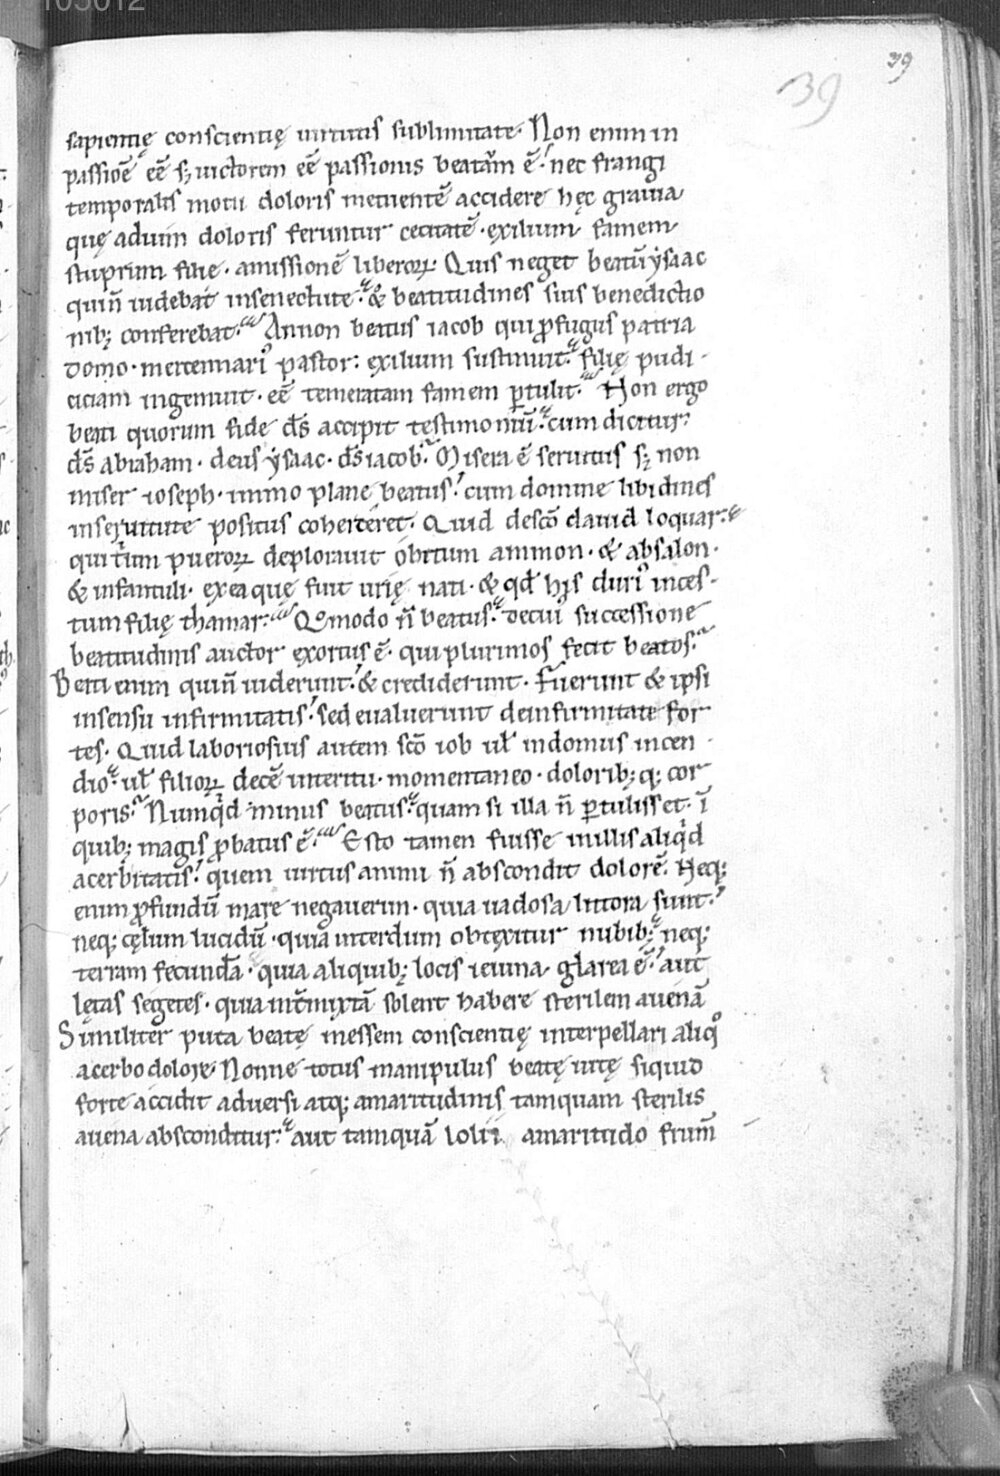 103012
39
39
sapientię conscientię uirtutis sublimitate. Non enim in
passiōe eē sꝫ uictorem eē passionis beatam ē. nec frangi
temporalis motu doloris metuentē accidere hęc grauia
quę aduim doloris feruntur cecitatē. exilium famem
stuprum filię. amissionē liberoꝝ. Quis neget beatū ysaac
quin̄ uidebat insenectute. & beatitudines suis benedictio
nibꝫ conferebat. Annon beatus iacob qui ꝓfugus patria
domo. mercennariꝰ pastor: exilium sustinuit. filię pudi-
ciciam ingemuit. eē temeratam famem ꝑtulit. Non ergo
beati quorum fide ds̄ accipit testimoniū. cum dicitur.
ds̄ abraham. deus ysaac. ds̄ iacob. Misera ē seruitus sꝫ non
miser ioseph. immo plane beatus. cum domine libidines
inseruitute positus coherceret. Quid descō dauid loquar.
qui trium pueroꝝ deplorauit obitum ammon. & absalon.
& infantuli. exea quę fuit urię nati. & qđ hijs duriꝰ inces-
tum filię thamar. Quomodo n̄ beatus. decuiꝰ successione
beatitudinis auctor exortus ē. qui plurimos fecit beatos.
Beati enim quin̄ uiderunt. & crediderunt. Fuerunt & ipsi
insensu infirmitatis. sed eualuerunt deinfirmitate for
tes. Quid laboriosius autem scō iob ul̄ indomus incen-
dio. ul̄ filioꝝ decē interitu. momentaneo. doloribꝫ qꝫ cor
poris. Numqd minus beatus. quam si illa n̄ ꝑtulisset. ī
quibꝫ magis ꝓbatus ē. Esto tamen fuisse inillis aliqd
acerbitatis. quem uirtus animi n̄ abscondit dolorē. Neqꝫ
enim ꝓfundū mare negauerim. quia uadosa littora sunt.
neqꝫ cęlum lucidū. quia interdum obtexitur nubibꝫ. neqꝫ
terram fecundā. quia aliquibꝫ locis ieiuna glarea ē. aut
lętas segetes. quia int̄mixtā solent habere sterilem auenā
Similiter puta beatę messem conscientię interpellari aliqo
acerbo dolore. Nonne totus manipulus beatę uitę siquid
forte accidit aduersi atqꝫ amaritudinis tamquam sterilis
auena absconditur. aut tamquā lolii amaritudo frum̄